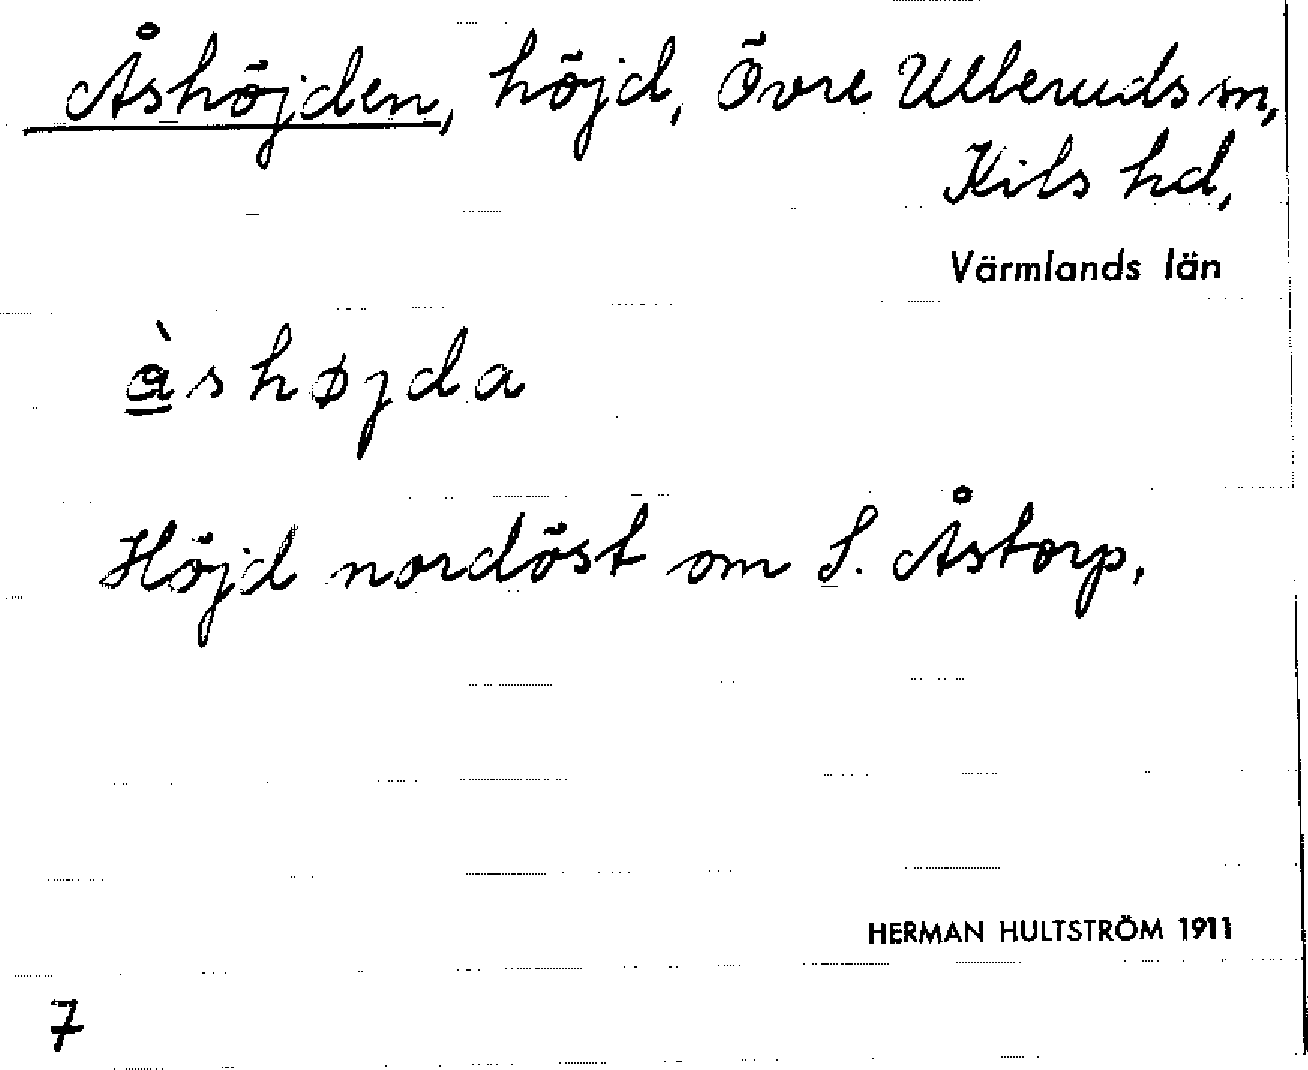 Åshöjden, höjd, Övre Ulleruds sn,
Kils hd,
Värmlands län
à̲shøjda
Höjd nordöst om S. Åstorp.
HERMAN HULTSTRÖM 1911
7